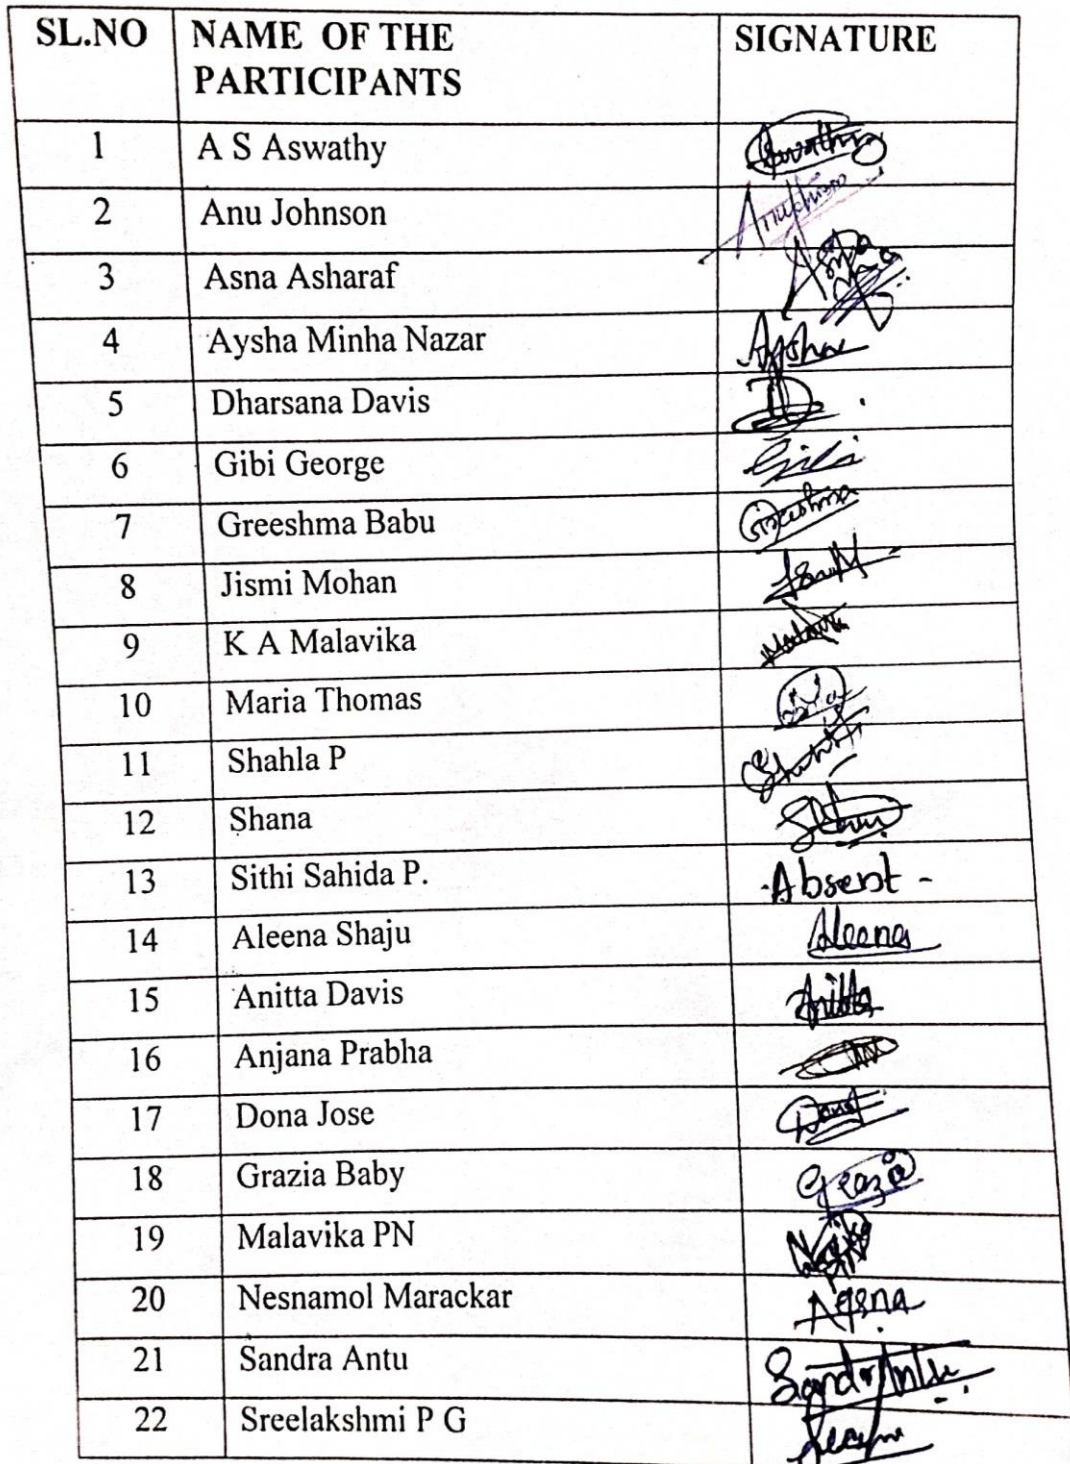 SL.NO NAME OF THE PARTICIPANTS SIGNATURE
1 A S Aswathy Aswathy
2 Anu Johnson
3 Asna Asharaf
4 Aysha Minha Nazar Aysha
5 Dharsana Davis
6 Gibi George Gibi
7 Greeshma Babu Greeshma
8 Jismi Mohan
9 K A Malavika
10 Maria Thomas
11 Shahla P
12 Shana
13 Sithi Sahida P. -Absent-
14 Aleena Shaju Aleena
15 Anitta Davis Anitta
16 Anjana Prabha
17 Dona Jose
18 Grazia Baby Grazia
19 Malavika PN
20 Nesnamol Marackar
21 Sandra Antu
22 Sreelakshmi P G